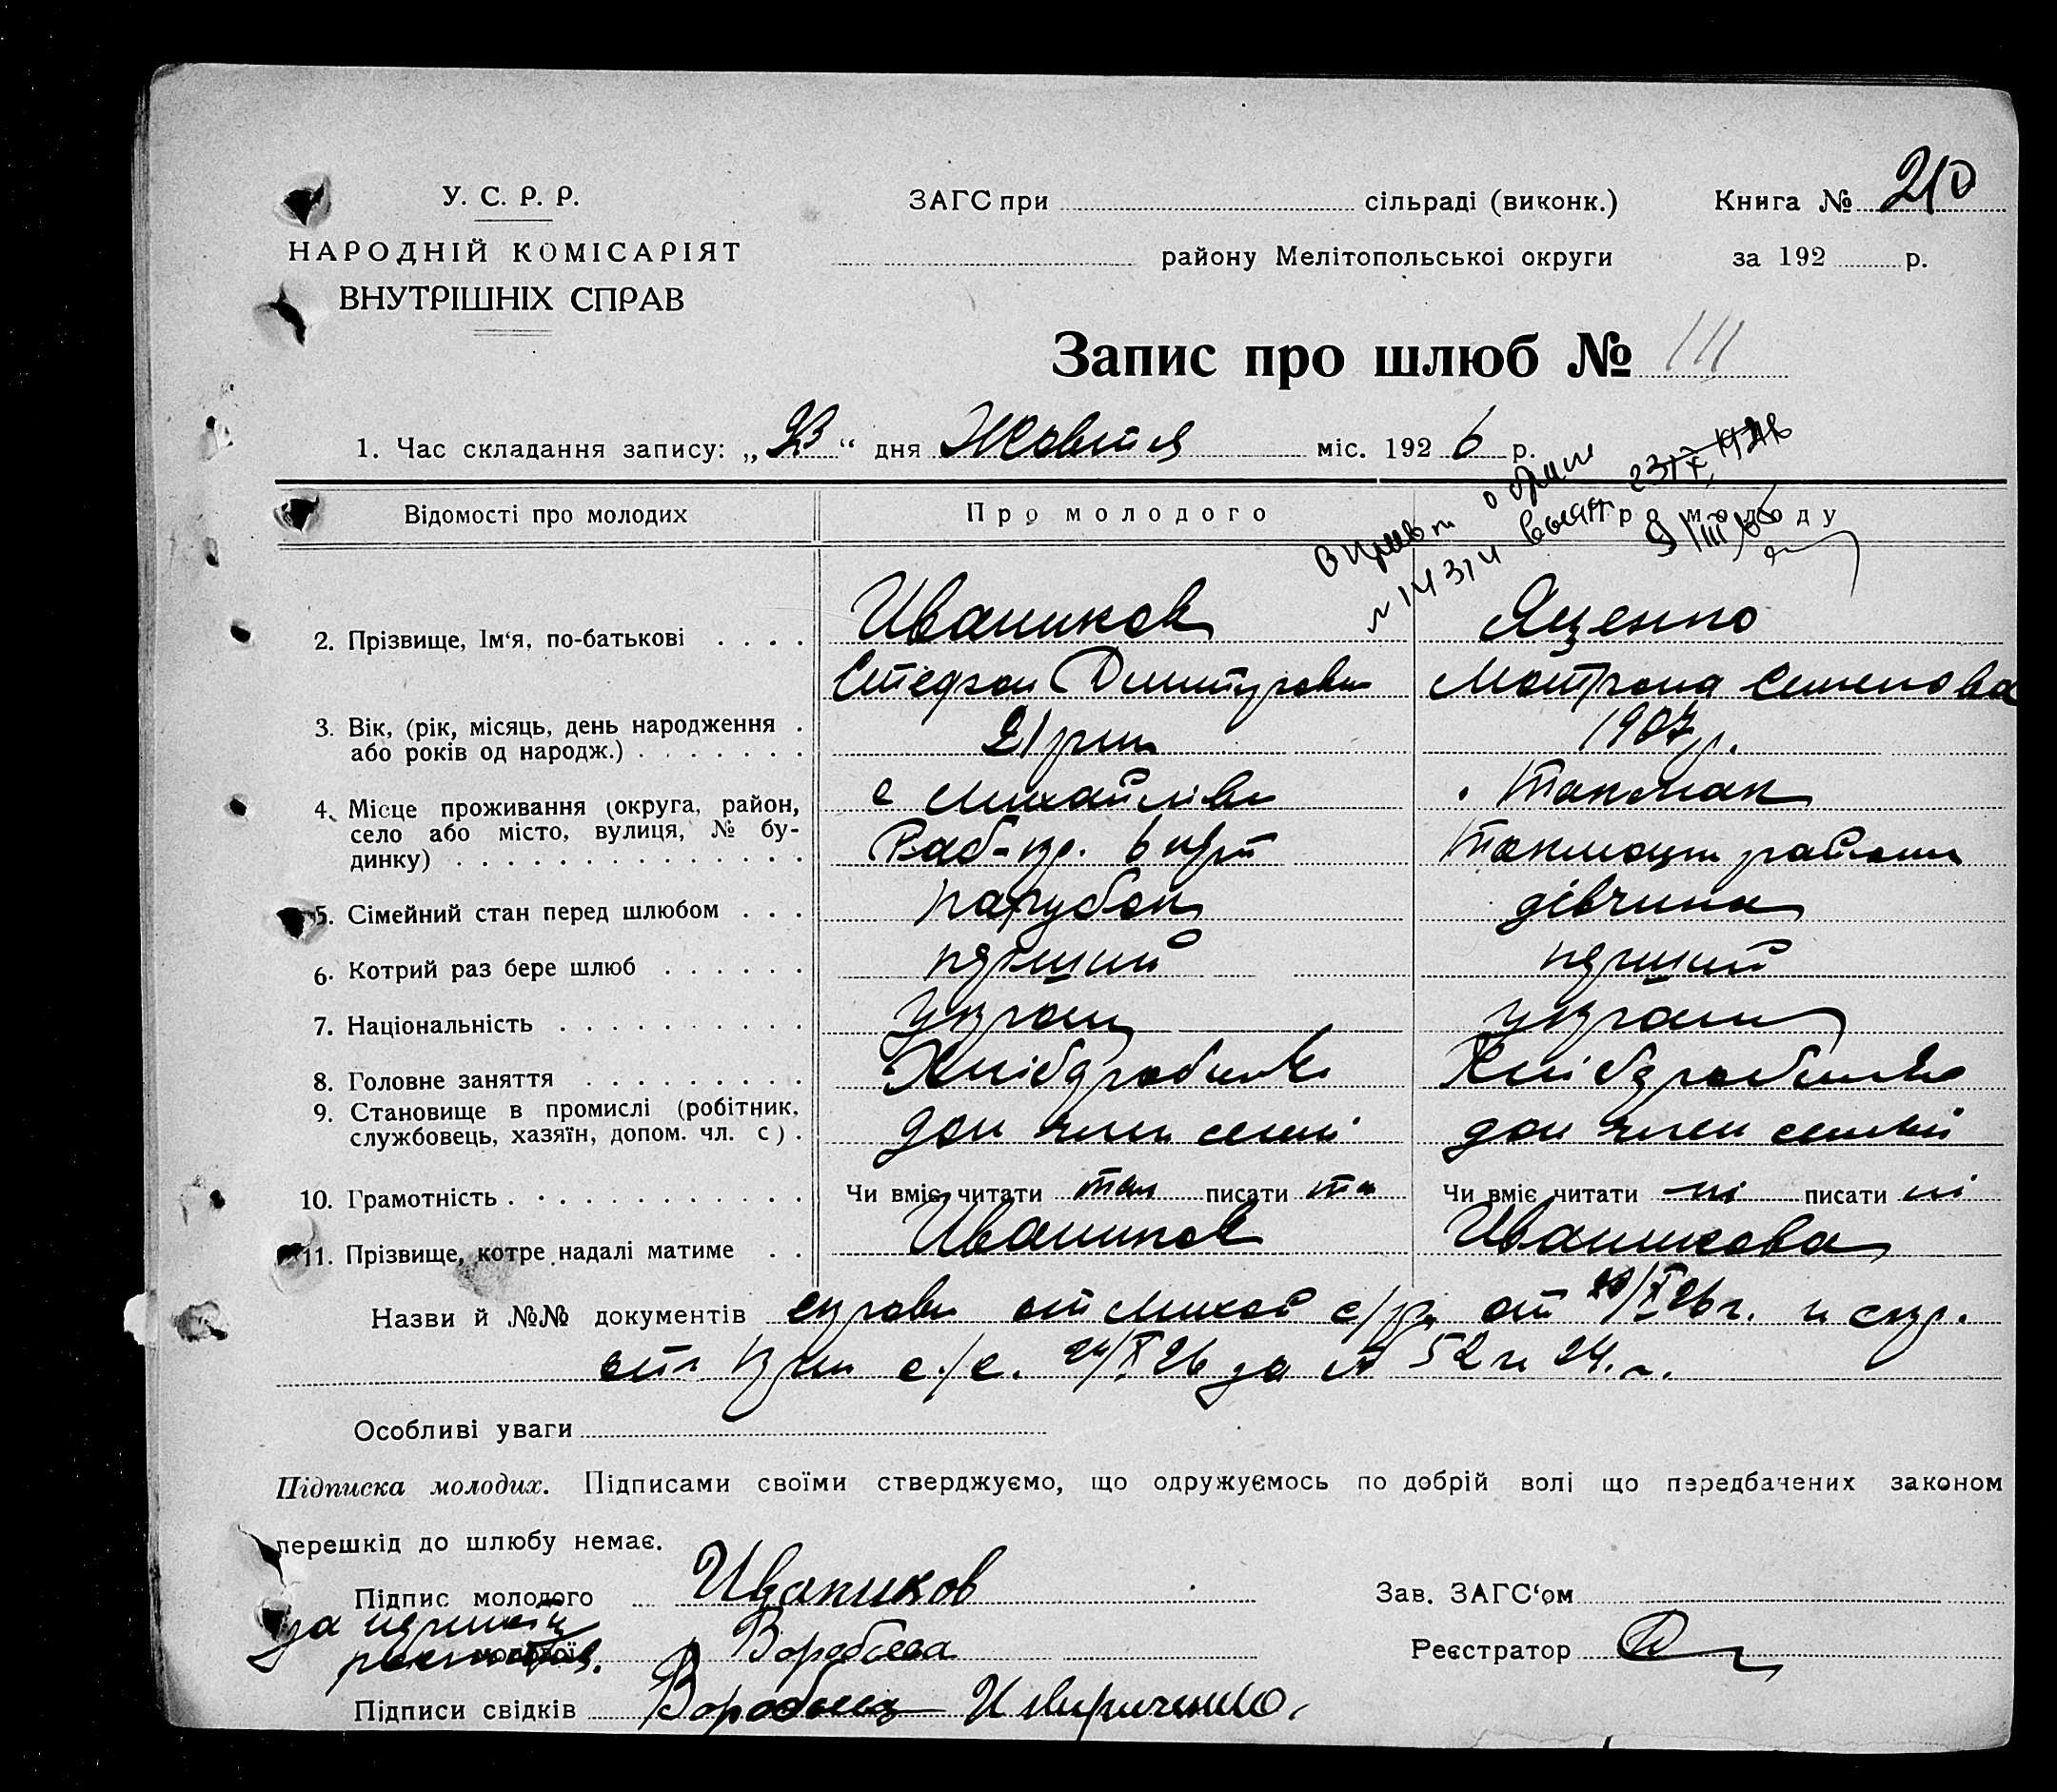 У. С. Р. Р.
НАРОДНІЙ КОМІСАРІЯТ
ВНУТРІШНІХ СПРАВ
ЗАГС при сільраді (виконк.)
району Мелітопольськоі округи
Книга № 210
за 192 р.
Запис про шлюб № 111
1. Час складання запису: „23“ дня Жовтня міс. 1926 р.
Відомості про молодих
Про молодого
Про молоду
2. Прізвище, Ім‘я, по-батькові . . . .
Иваников
Яценко
Стефан Дмитров
Мотрона Семенова
3. Вік, (рік, місяць, день народження .
або років од народж.) . . . . . . .
21 рік
1907 р.
4. Місце проживання (округа, район,
село або місто, вулиця, № бу-
динку) . . . . . . . . . . . . . .
с Михайлівк
Токмак
району
5. Сімейний стан перед шлюбом . . .
парубок
дівчина
6. Котрий раз бере шлюб . . . . . .
перший
перший
7. Національність . . . . . . . . . .
україн
україн
8. Головне заняття . . . . . . . . .
Хлібдробств
Хлібдробство
9. Становище в промислі (робітник,
службовець, хазяїн, допом. чл. с) .
доп член семі
доп член семьи
10. Грамотність . . . . . . . . . . . .
Чи вміє читати так писати та
Чи вміє читати ні писати ні
11. Прізвище, котре надалі матиме . .
Иваников
Иваникова
Назви й №№ документів справк от Михай с/р от /X 26 г. и спр.
от с/с. 24/X 26 за № 52 и 24.
Особливі уваги
Підписка молодих. Підписами своїми стверджуємо, що одружуємось по добрій волі що передбачених законом
перешкід до шлюбу немає.
Підпис молодого Иваников
Зав. ЗАГС‘ом
молодої Воробьева
Реєстратор
Підписи свідків